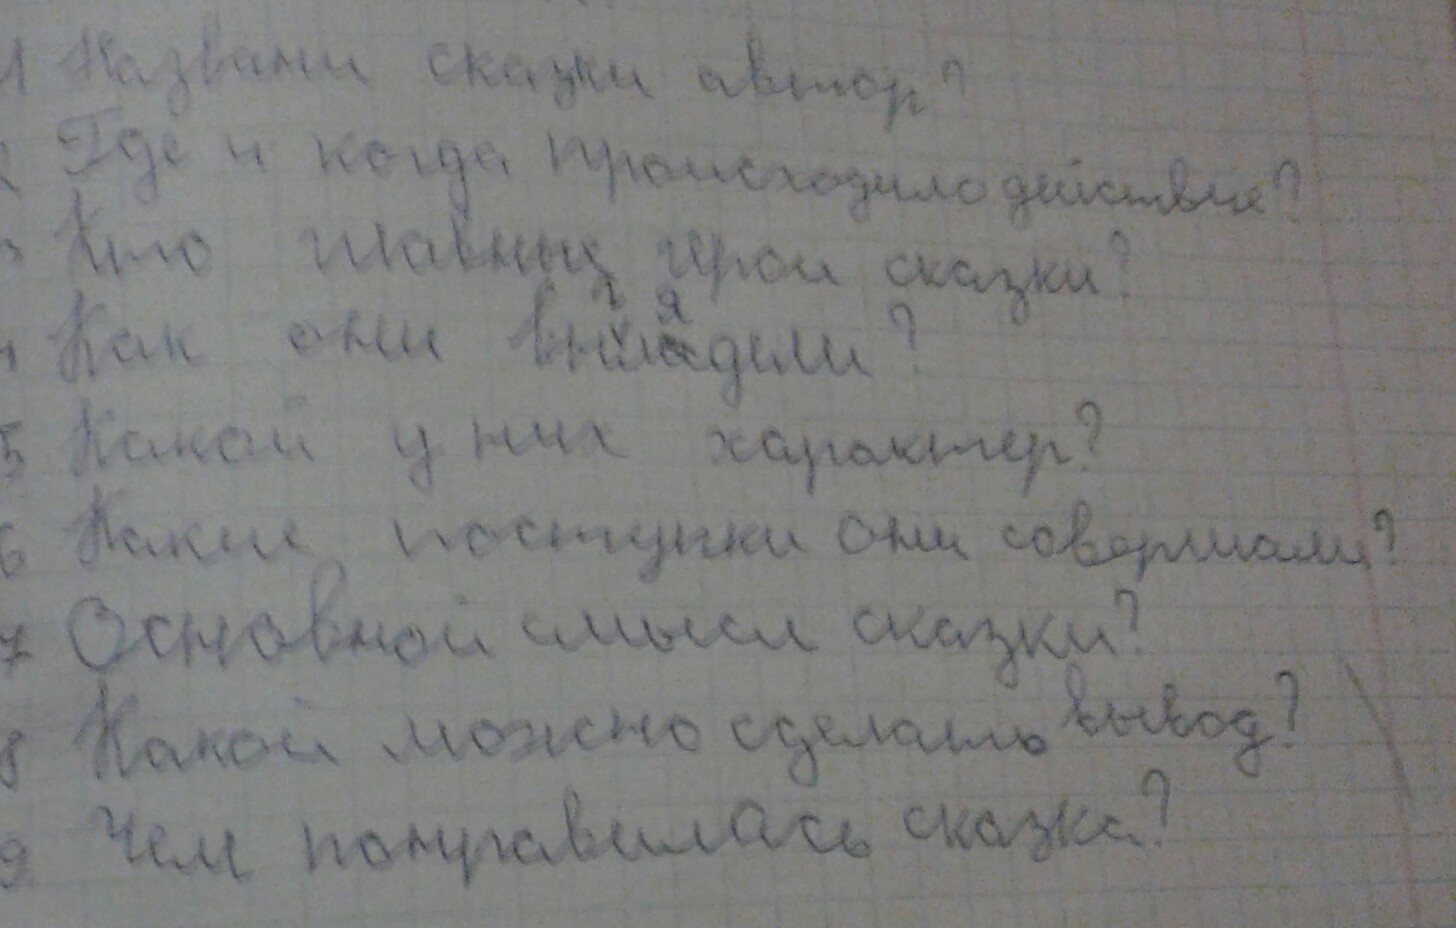 1 Названи сказки автор?
2 Где и когда происходило действие?
3 Кто главных герои сказки?
4 Как они выглядели?
5 Какой у них характер?
6 Какие поступки они совершали?
7 Основной смысл сказки?
8 Какой можно сделать вывод?
9. Чем понравилась сказка?